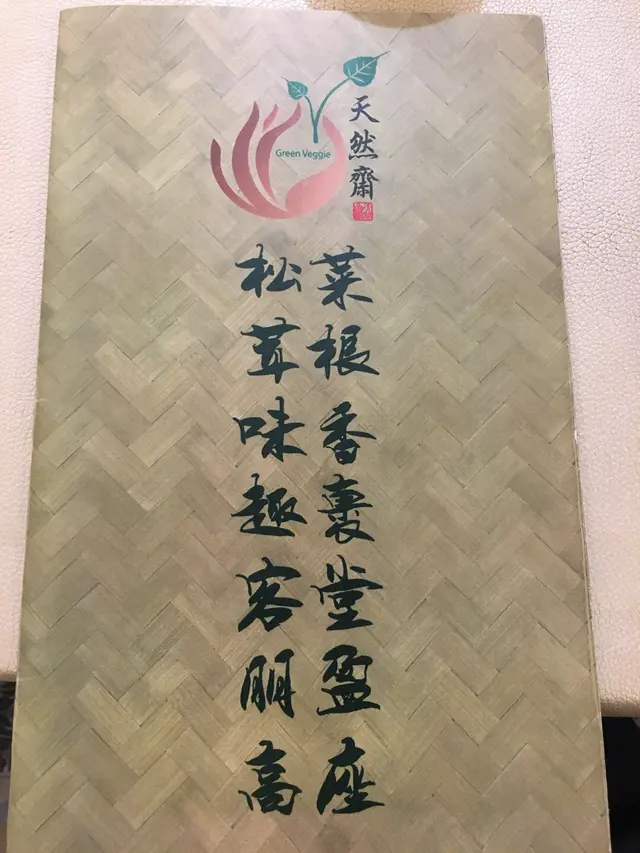 Green Veggie
天然齋
菜根香裏堂盈座
松茸味趣客朋高